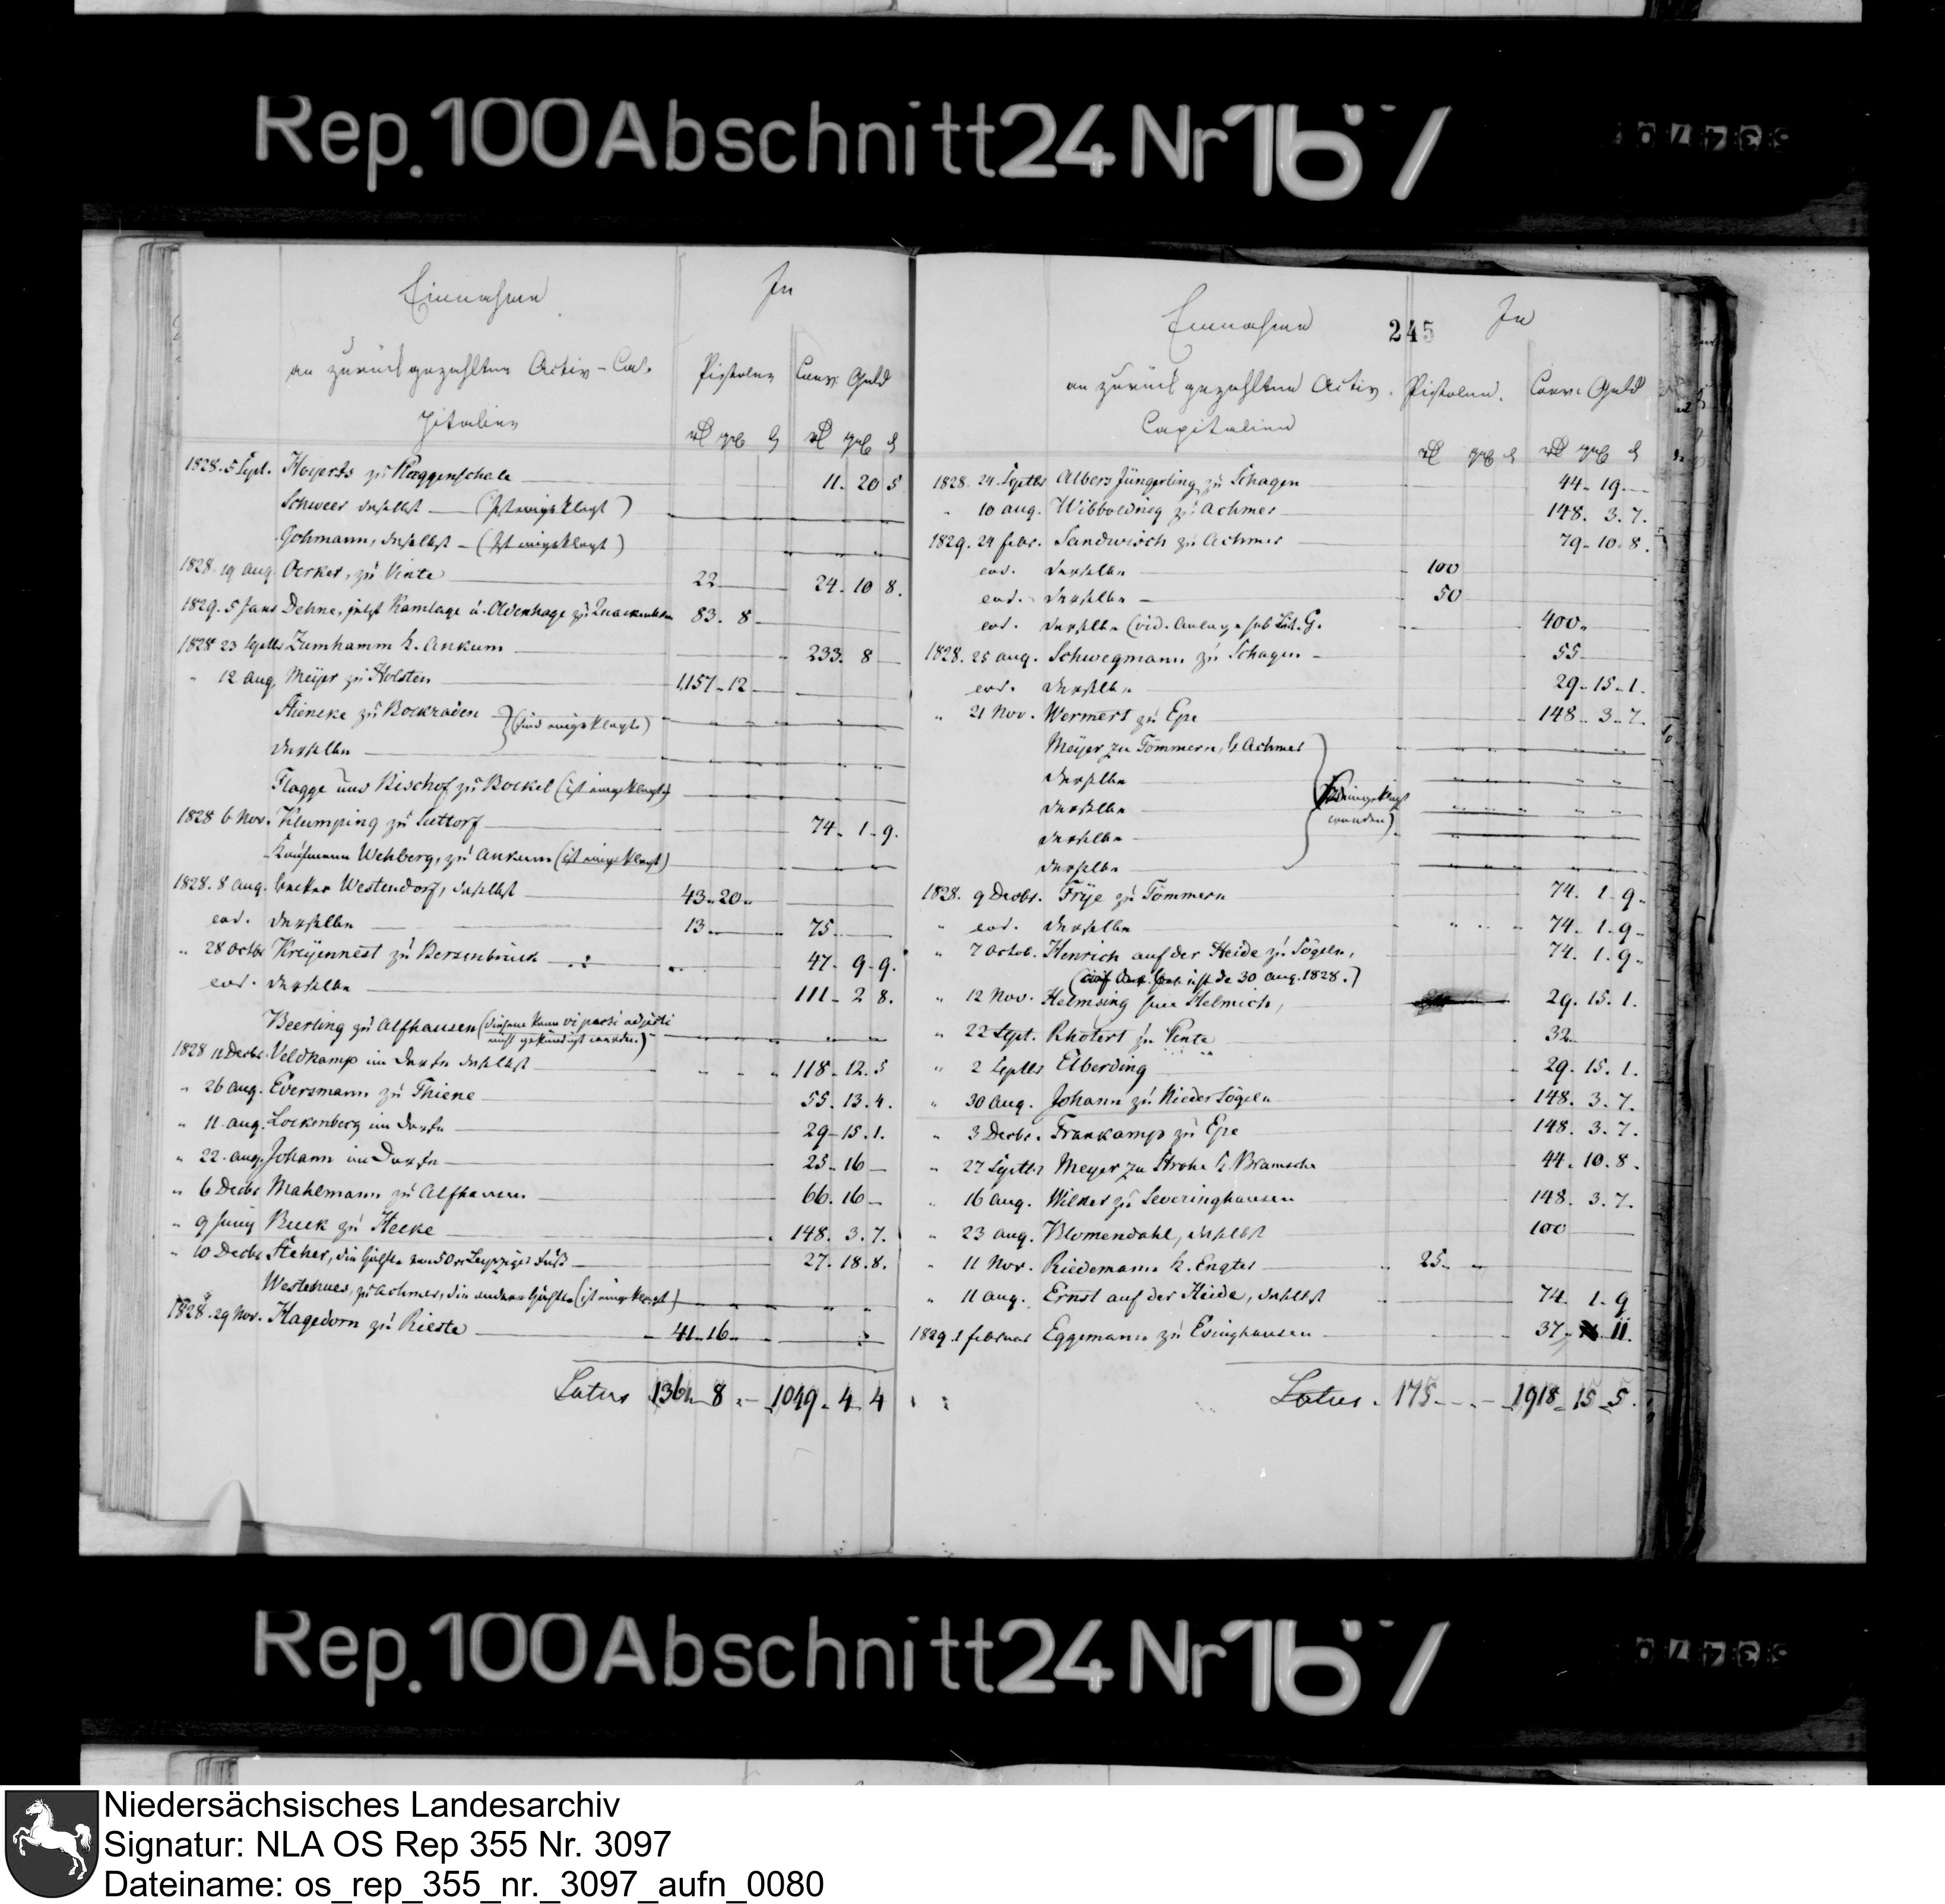 Rep. 100 Abschnitt 24 Nr 167
Einnahme
In
an zurückgezahlten Activ-Ca-
pitalien
Pistolen
Conv: Geld
1828. 5 Sept. Hoyerts zu Plaggenschale 11. 20 5
Schweer daselbst (ist eingeklagt)
Gohmann, daselbst (ist eingeklagt)
1828 19 Aug. Oerker, zu Vinte 22 24. 10 8.
1829. 5 Janr Dehne, jetzt Ramlage u. Oldenhage zu 83. 8
1828 23 Septbr Zumhamm k. Ankum 233. 8
" 12 Aug. Meijer zu Holsten 1,157. 12
Stieneke zu Bockraden
derselbe
(sind eingeklagt)
Flagge und Bischof zu Bockel (ist eingeklagt)
1828 6 Nov. Klumping zu Suttorf 74. 1. 9.
Kaufmann Wehberg, zu Ankum (ist eingeklagt)
1828. 8 Aug. Westendorf, daselbst 43. 20
eod. derselbe 13 75
" 28 Octbr Kreijennest zu Bersenbrück 47. 9. 9.
eod. derselbe 111. 2 8.
Beerling zu Alfhausen (dieses kann vi pacti adjecti
nicht gekündigt werden.)
1828 11 Decbr Veldkamp im Dorfe daselbst 118. 12. 5
" 26 Aug. Eversmann zu Thiene 55. 13. 4.
" 11 Aug. Lockenberg im Dorfe 29. 15. 1.
" 22. Aug. Johann im Dorfe 25. 16
" 6 Decbr Mahlmann zu Alfhausen 66. 16
" 9 Junij Buck zu Heeke 148. 3. 7.
" 10 Decbr Steher, die Hälfte von 50 rt Leipziger Fuß 27. 18. 8.
Westerhues, zu Achmer, die andere Hälfte (ist eingeklagt)
1828. 29 Nov. Hagedorn zu Rieste 41. 16
Latus 1361. 8 1049. 4. 4
Einnahme
245
In
an zurückgezahlten Activ-
Capitalien
Pistolen.
Conv: Geld
1828. 24. Septbr Albers Jüngerling zu Schagen 44. 19.
" 10 Aug. Wibbolding zu Achmer 148. 3. 7.
1829. 24 Febr. Sandwisch zu Achmer 79. 10. 8.
eod. derselbe 100
eod. derselbe 50
eod. derselbe (vid. Anlage sub Lit. G. 400.
1828. 25 Aug. Schwegmann zu Schagen 55
eod. derselbe 29. 15. 1.
" 21 Nov. Wermert zu Epe 148. 3. 7.
Meijer zu Tömmern, k. Achmer
derselbe
derselbe
derselbe
derselbe
eingeklagt
worden)
1828. 9 Decbr. Frije zu Tömmern 74. 1. 9.
" eod. derselbe 74. 1. 9.
" 7 Octob. Henrich auf der Heide zu Sögeln, 74. 1. 9.
de 30 Aug. 1828.)
" 12 Nov. Helmsing sive Helmich, 29. 15. 1.
" 22 Sept. Rhotert zu Vinte 32
" 2 Septbr Elberding 29. 15. 1.
" 30 Aug. Johann zu Nieder Sögeln 148. 3. 7.
" 3 Decbr. Frankamp zu Epe 148. 3. 7.
" 27 Septbr Meyer zu Strohe k. Bramsche 44. 10. 8.
" 16 Aug. Wilker zu Severinghausen 148. 3. 7.
" 23 Aug. Blomendahl, daselbst 100
" 11 Nov. Riedemann k. Engter 25
" 11 Aug. Ernst auf der Heide, daselbst 74. 1. 9
1829. 1 Februar Eggemann zu Evinghausen 37. 11.
Latus 175 1918. 15. 5.
Rep. 100 Abschnitt 24 Nr 167
Niedersächsisches Landesarchiv
Signatur: NLA OS Rep 355 Nr. 3097
Dateiname: os_rep_355_nr._3097_aufn_0080